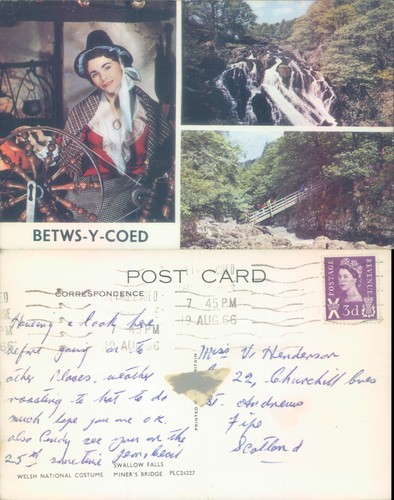 BETWS-Y-COED
POST CARD
CORRESPONDENCE
7 45 PM
19 AUG 66
POSTAGE
REVENUE
3d
Having a look here
before going on to
other places, weather
roasting to hot to do
much hope you are O.K.
also see you on the
25th
Miss V. Henderson
22, Churchill Cres
St. Andrews
Fife
Scotland
PRINTED
SWALLOW FALLS
WELSH NATIONAL COSTUME MINER'S BRIDGE PLC24227